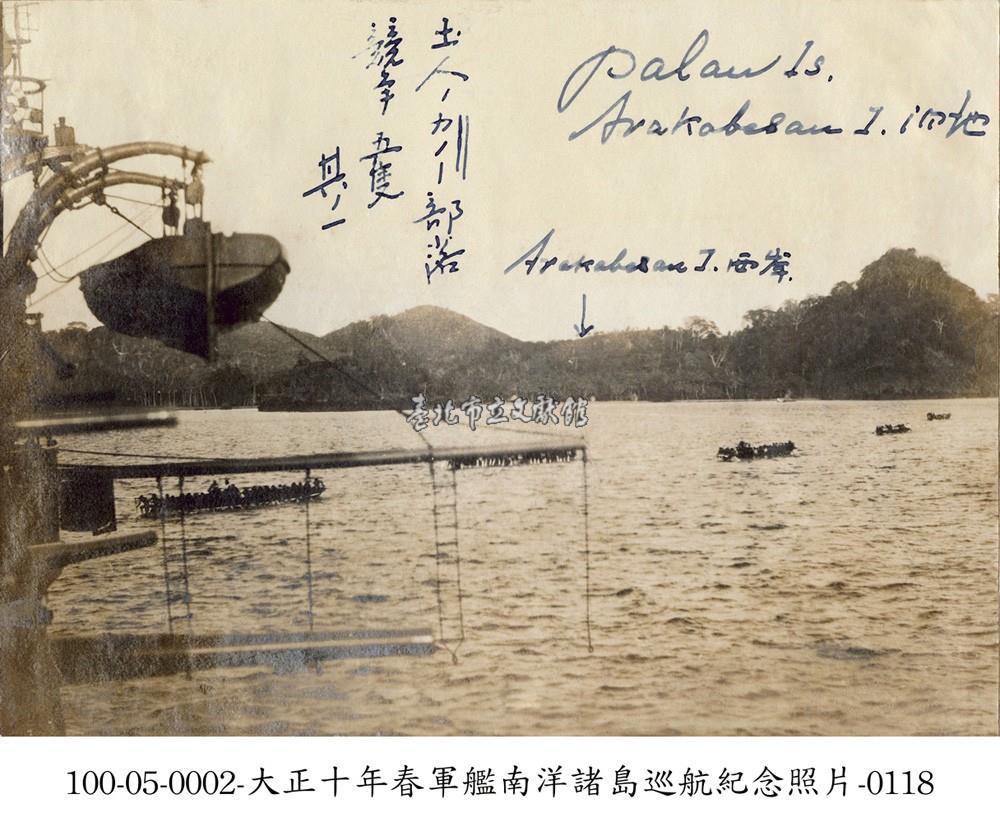 土人 部落
競争 五隻
其ノ一
Palau Is.
Arakabesan I. 泊地
Arakabesan I. 西岸.
臺北市立文獻館
100-05-0002-大正十年春軍艦南洋諸島巡航紀念照片-0118